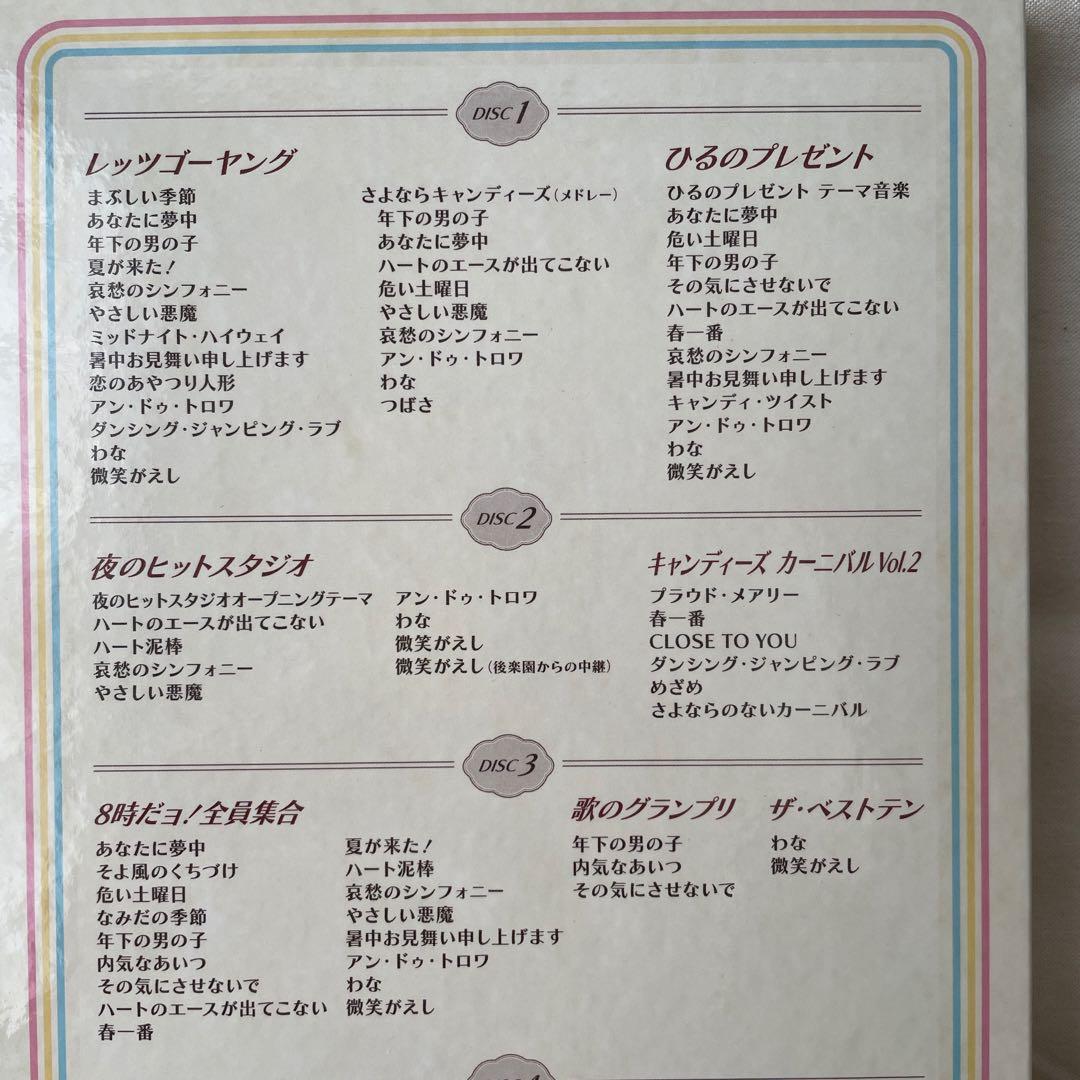 DISC 1
レッツゴーヤング
まぶしい季節
あなたに夢中
年下の男の子
夏が来た!
哀愁のシンフォニー
やさしい悪魔
ミッドナイト・ハイウェイ
暑中お見舞い申し上げます
恋のあやつり人形
アン・ドゥ・トロワ
ダンシング・ジャンピング・ラブ
わな
微笑がえし
さよならキャンディーズ(メドレー)
年下の男の子
あなたに夢中
ハートのエースが出てこない
危い土曜日
やさしい悪魔
哀愁のシンフォニー
アン・ドゥ・トロワ
わな
つばさ
ひるのプレゼント
ひるのプレゼント テーマ音楽
あなたに夢中
危い土曜日
年下の男の子
その気にさせないで
ハートのエースが出てこない
春一番
哀愁のシンフォニー
暑中お見舞い申し上げます
キャンディ・ツイスト
アン・ドゥ・トロワ
わな
微笑がえし
DISC 2
夜のヒットスタジオ
夜のヒットスタジオオープニングテーマ
ハートのエースが出てこない
ハート泥棒
哀愁のシンフォニー
やさしい悪魔
アン・ドゥ・トロワ
わな
微笑がえし
微笑がえし(後楽園からの中継)
キャンディーズ カーニバル Vol.2
プラウド・メアリー
春一番
CLOSE TO YOU
ダンシング・ジャンピング・ラブ
めざめ
さよならのないカーニバル
DISC 3
8時だョ!全員集合
あなたに夢中
そよ風のくちづけ
危い土曜日
なみだの季節
年下の男の子
内気なあいつ
その気にさせないで
ハートのエースが出てこない
春一番
夏が来た!
ハート泥棒
哀愁のシンフォニー
やさしい悪魔
暑中お見舞い申し上げます
アン・ドゥ・トロワ
わな
微笑がえし
歌のグランプリ
年下の男の子
内気なあいつ
その気にさせないで
ザ・ベストテン
わな
微笑がえし